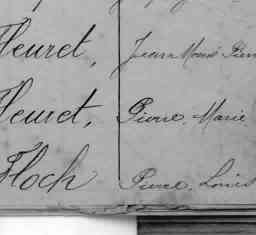 Fleuret, Jean Marie Pierre
Fleuret, Pierre, Marie
Floch Pierre, Louis